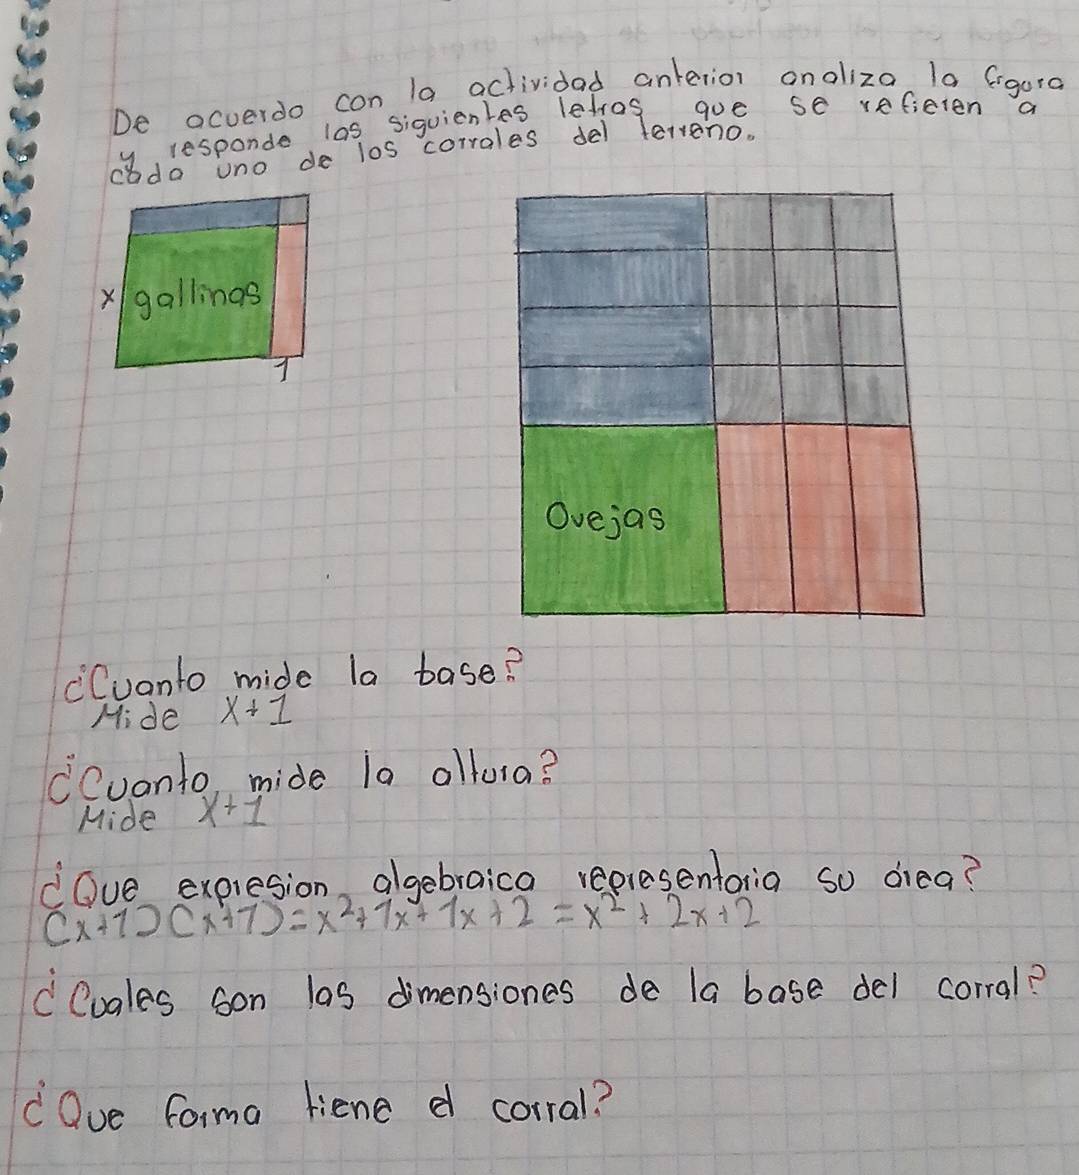 De acuerdo con la actividad anterior analiza la figura
y responde las siguientes letras que se refieren a
cada uno de los corrales del terreno.
x gallinas
1
Ovejas
¿Cuanto mide la base?
Mide x+1
¿Cuanto mide la altura?
Mide x+1
¿Que expresion algebraica representaria su área?
(x+1)(x+1)=x²+1x+1x+2=x²+2x+2
¿Cuales son las dimensiones de la base del corral?
¿Que forma tiene el corral?